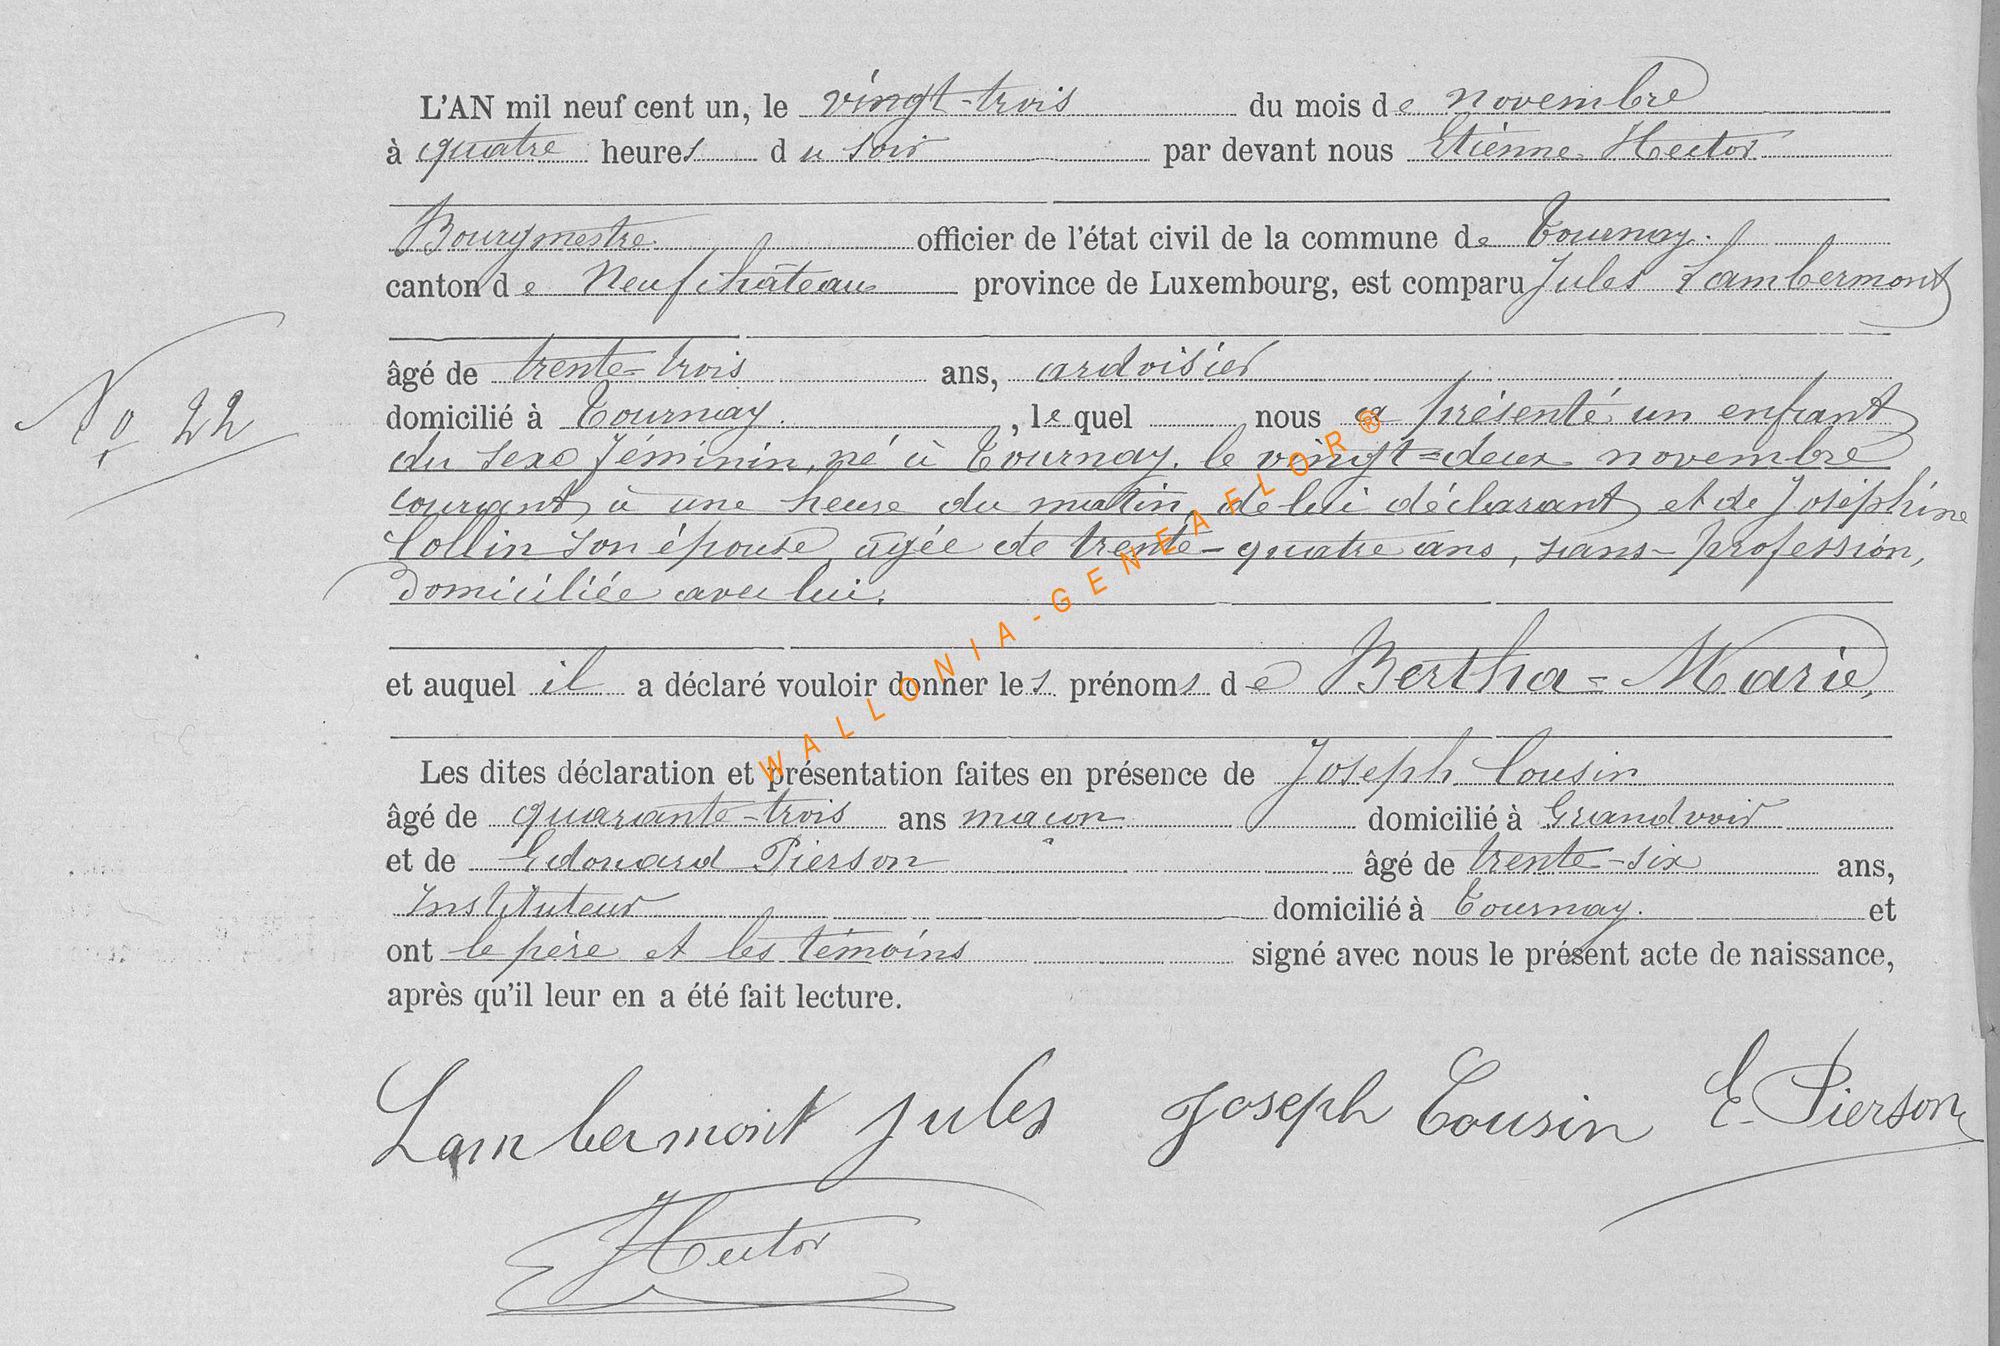 L'AN mil neuf cent un, le vingt-trois du mois de novembre
à quatre heures du soir par devant nous Etienne Hector
Bourgmestre officier de l'état civil de la commune de Tournay.
canton de Neufchâteau province de Luxembourg, est comparu Jules Lambermont
âgé de trente-trois ans, ardoisier
domicilié à Tournay. , lequel nous a présenté un enfant
No 22
du sexe féminin, né à Tournay, le vingt-deux novembre
courant à une heure du matin, de lui déclarant et de Joséphine
Collin son épouse, âgée de trente-quatre ans, sans-profession,
domiciliée avec lui.
et auquel il a déclaré vouloir donner les prénoms de Bertha-Marie,
Les dites déclaration et présentation faites en présence de Joseph Cousin
âgé de quarante-trois ans maçon domicilié à Grandvoir
et de Edouard Pierson âgé de trente-six ans,
Instituteur domicilié à Tournay. et
ont le père et les témoins signé avec nous le présent acte de naissance,
après qu'il leur en a été fait lecture.
Lambermont Jules Joseph Cousin E. Pierson
E Hector
WALLONIA-GENEAFLOR®